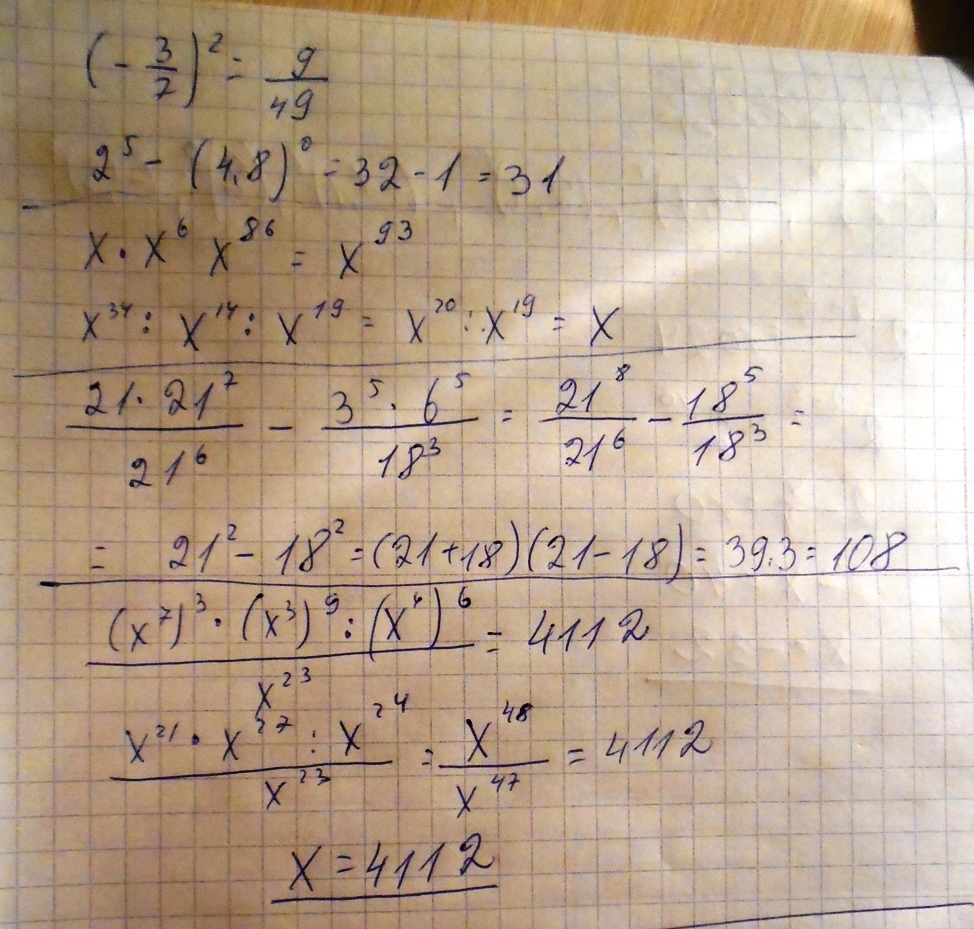 (-3/7)² = 9/49
2⁵ - (4,8)⁰ = 32 - 1 = 31
x · x⁶ x⁸⁶ = x⁹³
x³⁴ : x¹⁴ : x¹⁹ = x²⁰ : x¹⁹ = x
(21 · 21⁷)/21⁶ - (3⁵ · 6⁵)/18³ = 21⁸/21⁶ - 18⁵/18³ =
= 21² - 18² = (21+18)(21-18) = 39·3 = 108
((x⁷)³ · (x³)⁹ : (x⁴)⁶)/x²³ = 4112
(x²¹ · x²⁷ : x²⁴)/x²³ = x⁴⁸/x⁴⁷ = 4112
x = 4112